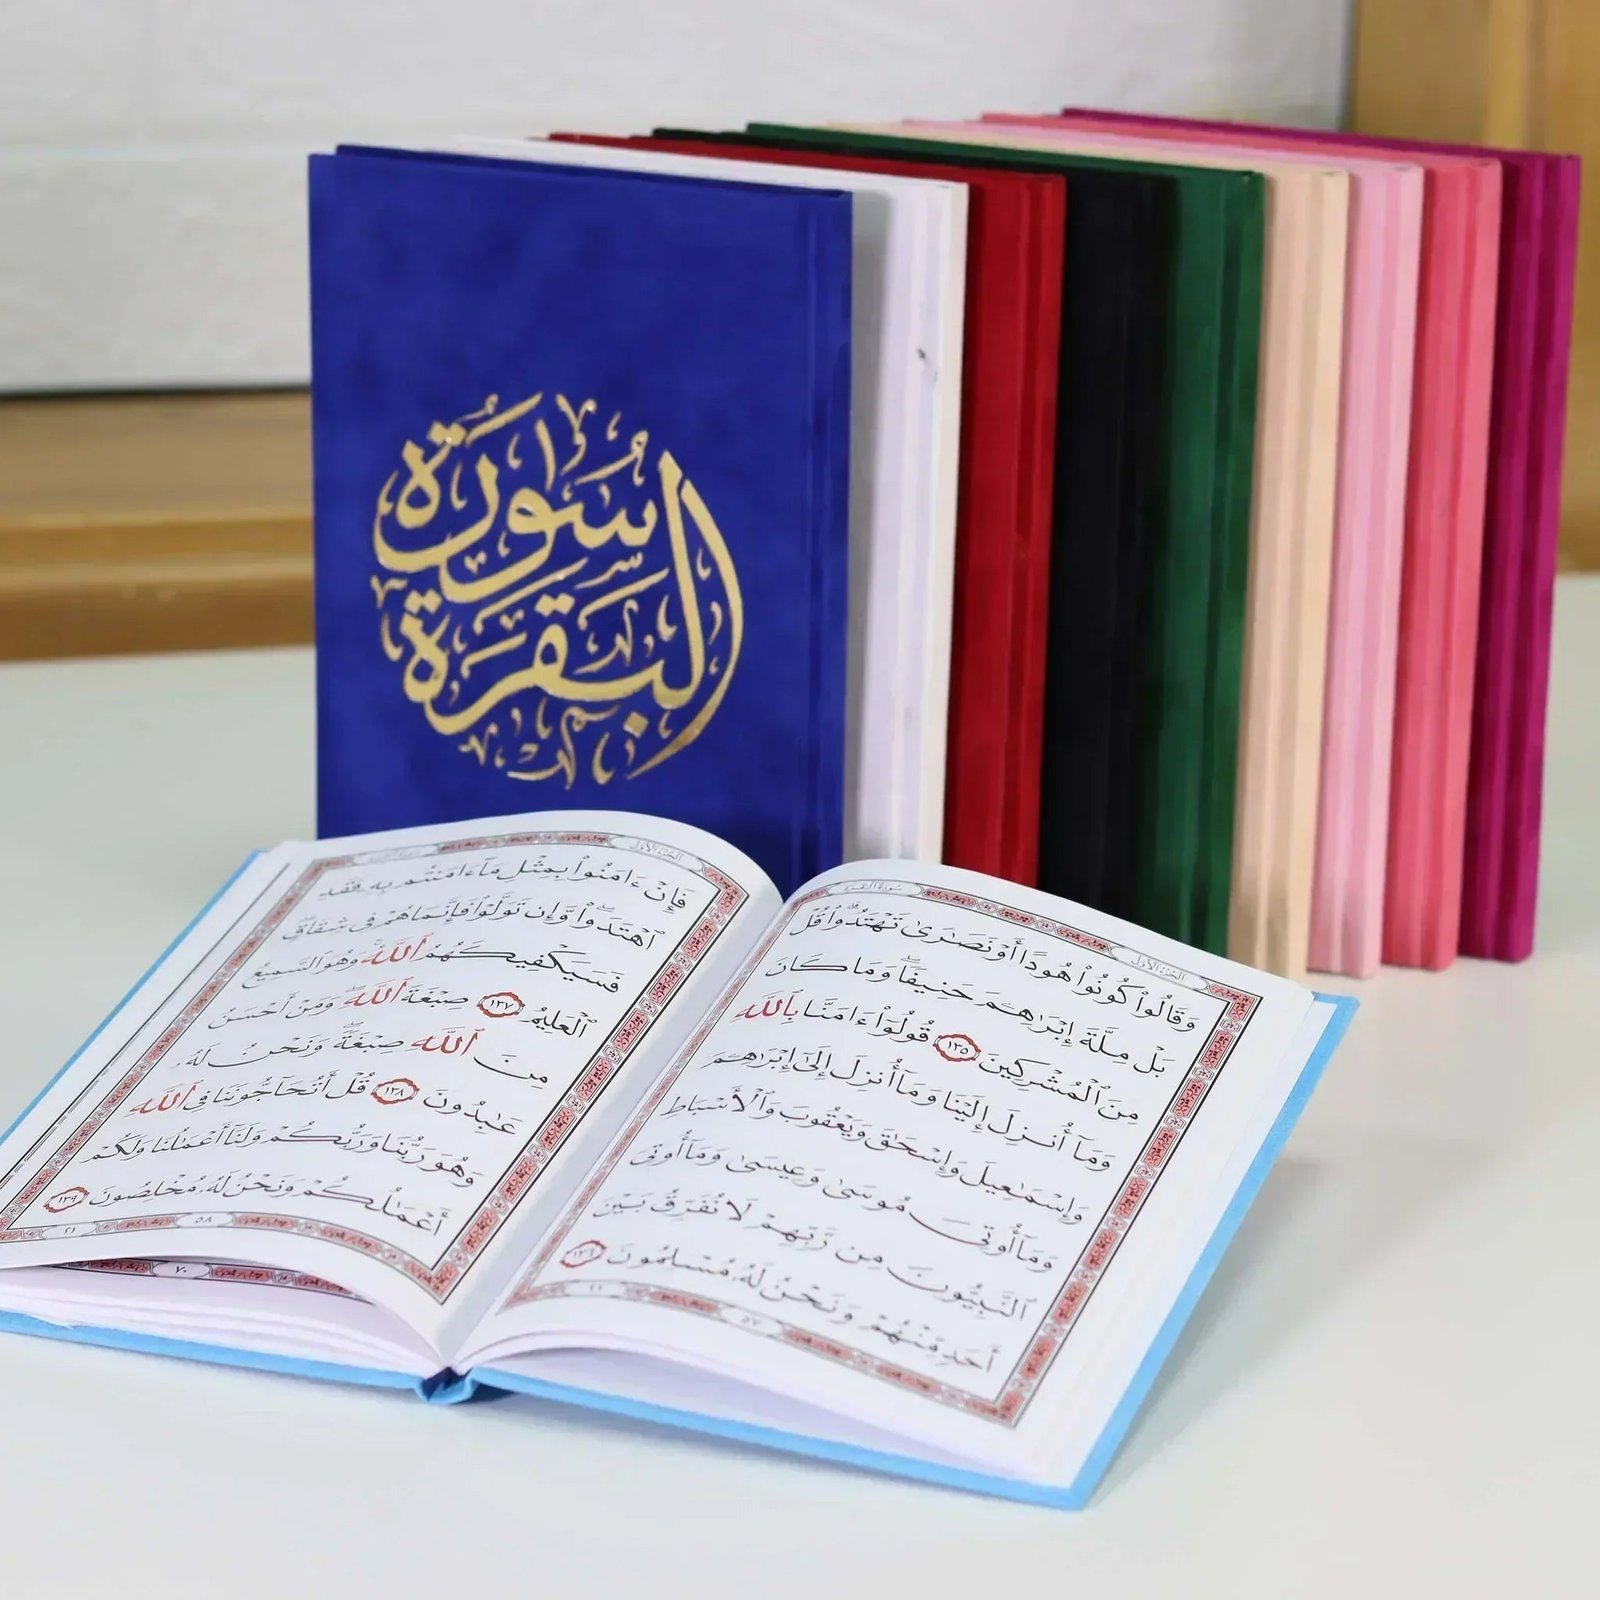 سُورَة
البَقَرَة
سورة البقرة
الجزء الأول
وَقَالُوا۟ كُونُوا۟ هُودًا أَوْ نَصَٰرَىٰ تَهْتَدُوا۟ ۗ قُلْ
بَلْ مِلَّةَ إِبْرَٰهِـۧمَ حَنِيفًا ۖ وَمَا كَانَ
مِنَ ٱلْمُشْرِكِينَ ١٣٥ قُولُوٓا۟ ءَامَنَّا بِٱللَّهِ
وَمَآ أُنزِلَ إِلَيْنَا وَمَآ أُنزِلَ إِلَىٰٓ إِبْرَٰهِـۧمَ
وَإِسْمَٰعِيلَ وَإِسْحَٰقَ وَيَعْقُوبَ وَٱلْأَسْبَاطِ
وَمَآ أُوتِىَ مُوسَىٰ وَعِيسَىٰ وَمَآ أُوتِىَ
ٱلنَّبِيُّونَ مِن رَّبِّهِمْ لَا نُفَرِّقُ بَيْنَ
أَحَدٍ مِّنْهُمْ وَنَحْنُ لَهُۥ مُسْلِمُونَ ١٣٦
٥٧
٢١
الجزء الأول
فَإِنْ ءَامَنُوا۟ بِمِثْلِ مَآ ءَامَنتُم بِهِۦ فَقَدِ
ٱهْتَدَوا۟ ۖ وَّإِن تَوَلَّوْا۟ فَإِنَّمَا هُمْ فِى شِقَاقٍ ۖ
فَسَيَكْفِيكَهُمُ ٱللَّهُ ۚ وَهُوَ ٱلسَّمِيعُ
ٱلْعَلِيمُ ١٣٧ صِبْغَةَ ٱللَّهِ ۖ وَمَنْ أَحْسَنُ
مِنَ ٱللَّهِ صِبْغَةً ۖ وَنَحْنُ لَهُۥ
عَٰبِدُونَ ١٣٨ قُلْ أَتُحَآجُّونَنَا فِى ٱللَّهِ
وَهُوَ رَبُّنَا وَرَبُّكُمْ وَلَنَآ أَعْمَٰلُنَا وَلَكُمْ
أَعْمَٰلُكُمْ وَنَحْنُ لَهُۥ مُخْلِصُونَ ١٣٩
٥٨
٢١
٧٠